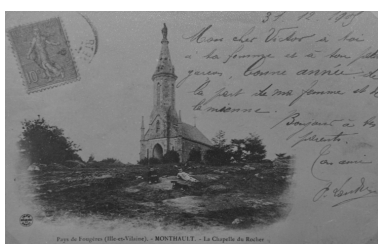 31 12 1905
Mon cher Victor à toi
à ta femme et à ton petit
garçon, bonne année de
la part de ma femme et de
la mienne.
Bonjour à tes
parents.
Ton ami
Pays de Fougères (Ille-et-Vilaine). - MONTHAULT. - La Chapelle du Rocher